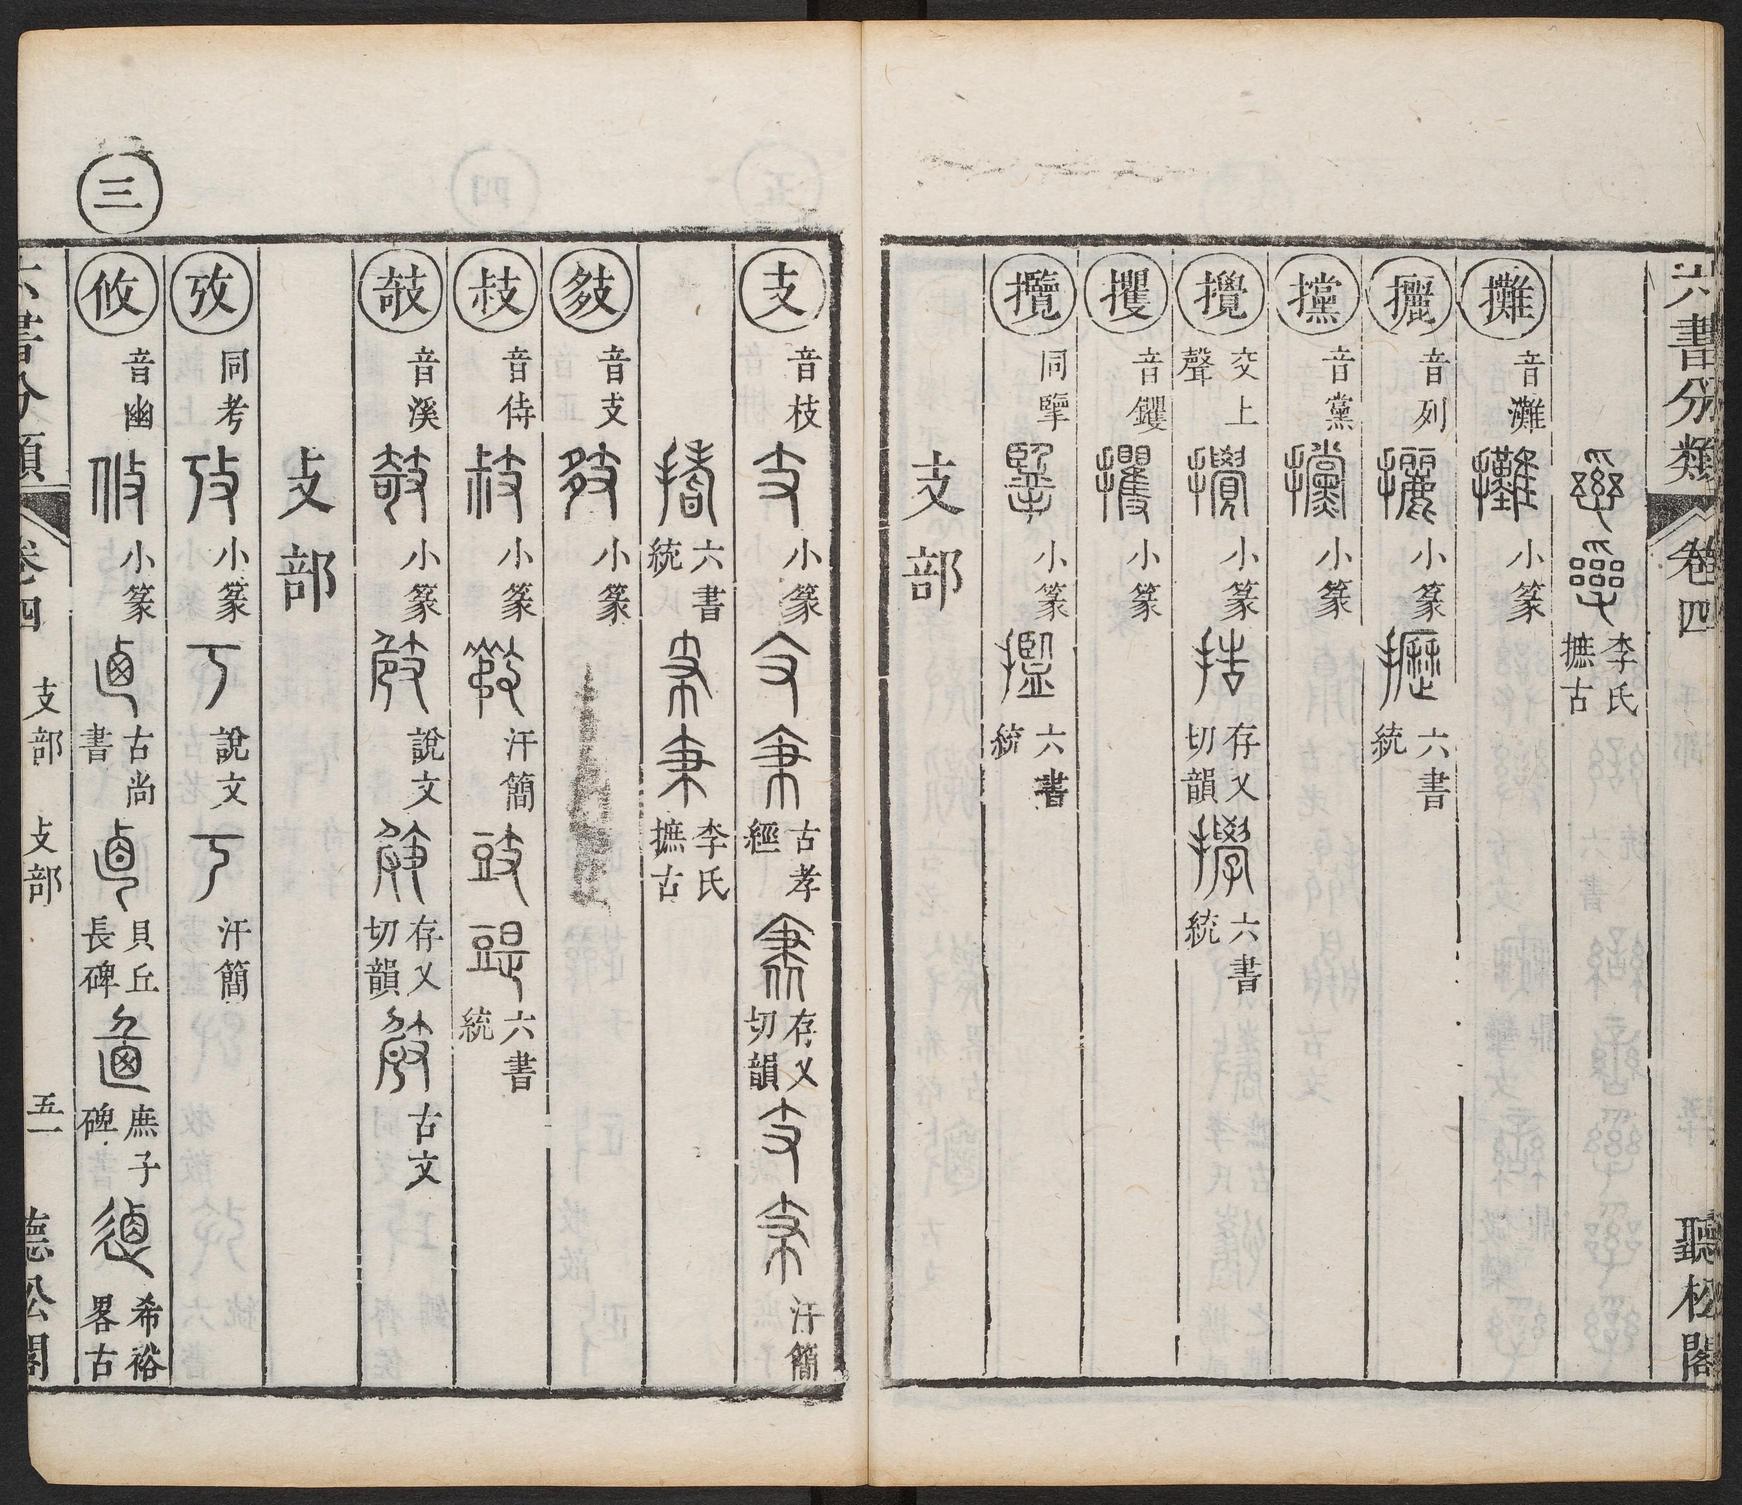 六書分類 卷四 聽松閣
李氏摭古
攤 音灘 小篆
攦 音列 小篆 六書統
攩 音黨 小篆
攪 交上聲 小篆 存乂切韻 六書統
攫 音钁 小篆
攬 同擥 小篆 六書統
支部
支 音枝 小篆 古孝經 存乂切韻 汗簡
六書統 李氏摭古
音支 小篆
敊 音侍 小篆 汗簡 六書統
音溪 小篆 說文 存乂切韻 古文
攴部
攷 同考 小篆 說文 汗簡
三
攸 音幽 小篆 古尚書 貝丘長碑 庶子碑 希裕畧古
六書分類 卷四 支部 攴部 五一 聽松閣